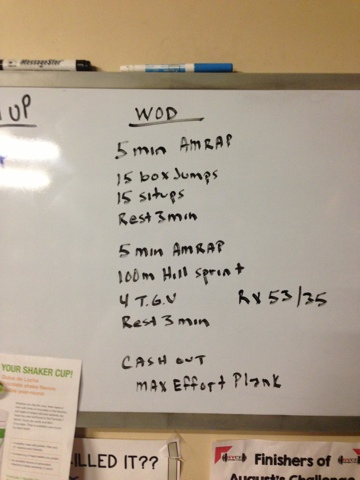 MessageStar
UP
WOD
5 min AMRAP
15 box Jumps
15 situps
Rest 3 min
5 min AMRAP
100m Hill sprint
4 T.G.U
Rx 53/35
Rest 3 min
CASH OUT
MAX Effort Plank
YOUR SHAKER CUP!
ILLED IT??
Finishers of
August's Challenge